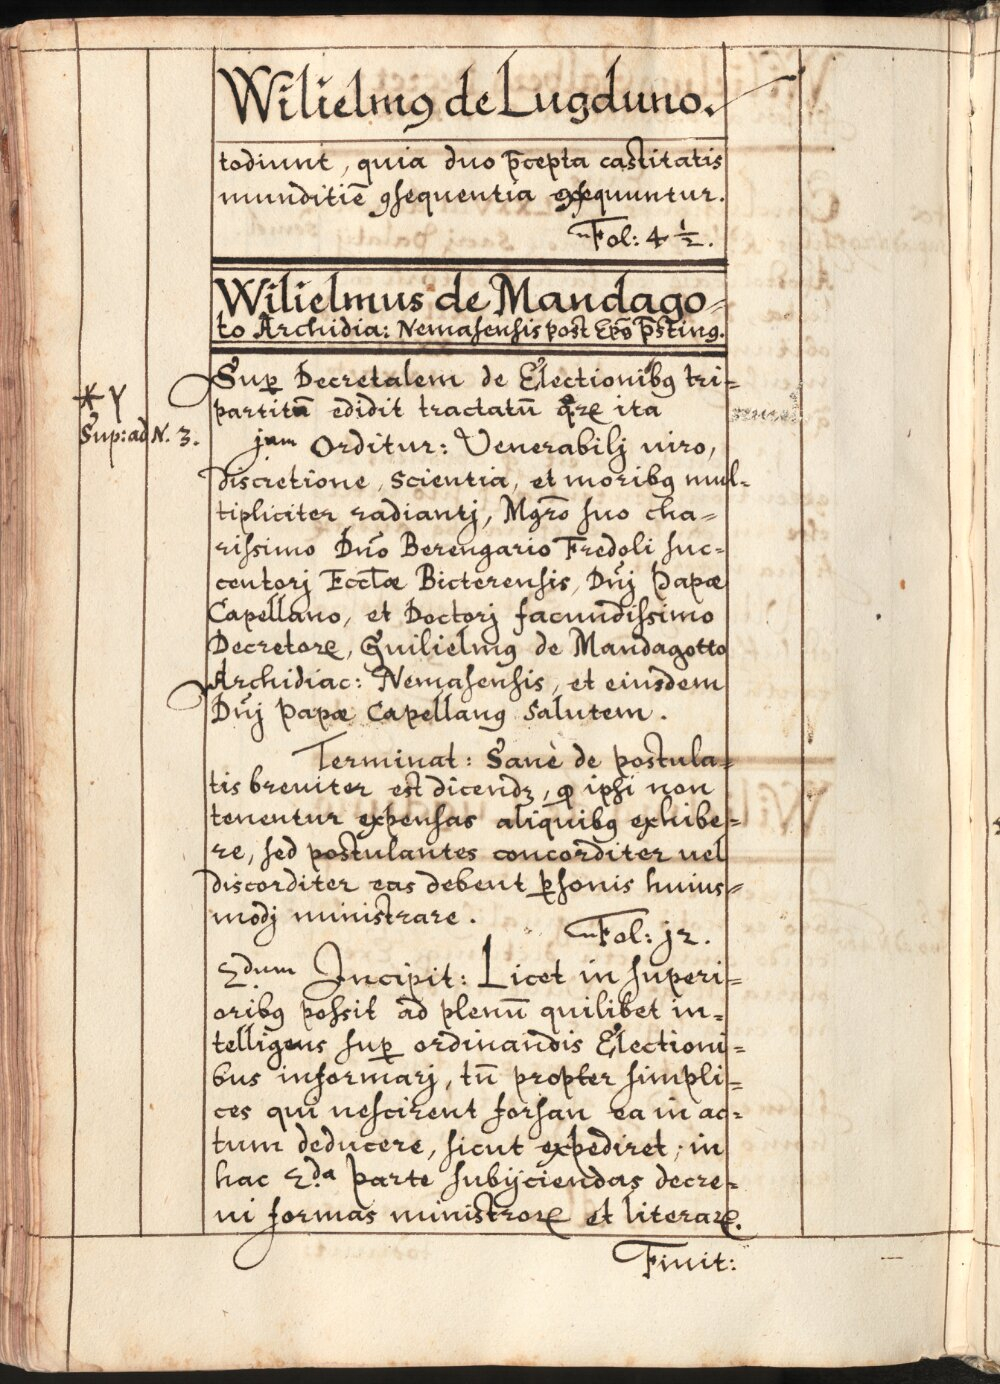 Wilielmꝯ de Lugduno.
todiunt, quia duo p̄cepta castitatis
munditiē ꝯsequentia exsequuntur.
Fol: 4 ½.
Wilielmus de Mandago=
to Archidia: Nemasensis post Ep̄ꝯ p̄sting.
Suꝑ Decretalem de Electionibꝯ tri=
partitū edidit tractatū ita
* Y
Sup: ad N. 3.
jum Orditur: Venerabilj uiro,
discretione, scientia, et moribꝯ mul=
tipliciter radiantj, Mgr̄o suo cha=
rissimo Dn̄o Berengario Fredoli suc=
centorj Eccłæ Bicterensis, Dn̄j Papæ
Capellano, et Doctorj facundissimo
Decretoꝝ, Guilielmꝯ de Mandagotto
Archidiac: Nemasensis, et eiusdem
Dn̄j Papæ Capellanꝯ Salutem.
Terminat: Sanè de postula=
tis breuiter est dicendꝫ, ꝙ ipsi non
tenentur expensas aliquibꝯ exhibe=
re, sed postulantes concorditer uel
discorditer eas debent ꝑsonis huius=
modj ministrare.
Fol: j2.
2dum Incipit: Licet in superi=
oribꝯ possit ad plenū quilibet in=
telligens suꝑ ordinandis Electioni=
bus informarj, tn̄ propter simpli=
ces qui nescirent forsan ea in ac=
tum deducere, sicut expediret, in
hac 2da parte subijciendas decre=
ui formas ministroꝝ et literaꝝ.
Finit: